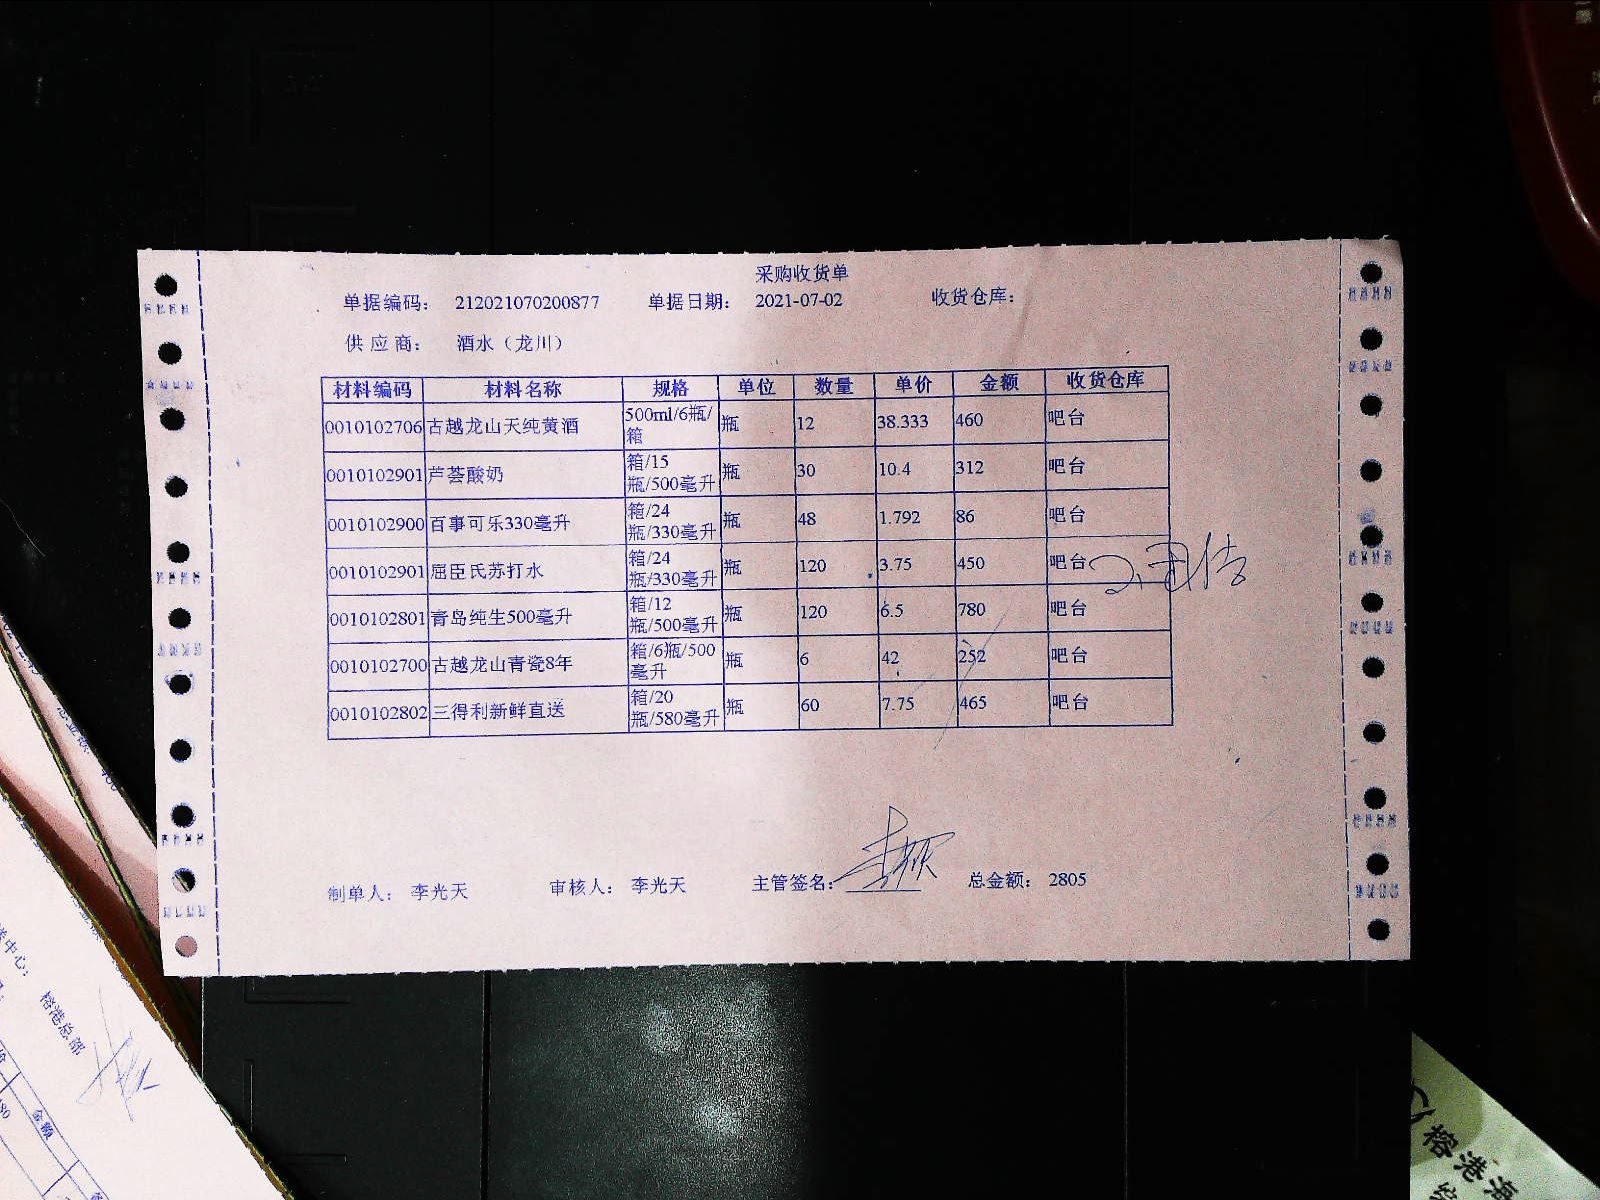 采购收货单
单据编码： 212021070200877 单据日期： 2021-07-02 收货仓库：
供 应 商： 酒水（龙川）
材料编码 材料名称 规格 单位 数量 单价 金额 收货仓库
0010102706 古越龙山天纯黄酒 500ml/6瓶/箱 瓶 12 38.333 460 吧台
0010102901 芦荟酸奶 箱/15瓶/500毫升 瓶 30 10.4 312 吧台
0010102900 百事可乐330毫升 箱/24瓶/330毫升 瓶 48 1.792 86 吧台
0010102901 屈臣氏苏打水 箱/24瓶/330毫升 瓶 120 3.75 450 吧台
0010102801 青岛纯生500毫升 箱/12瓶/500毫升 瓶 120 6.5 780 吧台
0010102700 古越龙山青瓷8年 箱/6瓶/500毫升 瓶 6 42 252 吧台
0010102802 三得利新鲜直送 箱/20瓶/580毫升 瓶 60 7.75 465 吧台
制单人： 李光天 审核人： 李光天 主管签名： 总金额： 2805
榕港总部
金额
榕港海